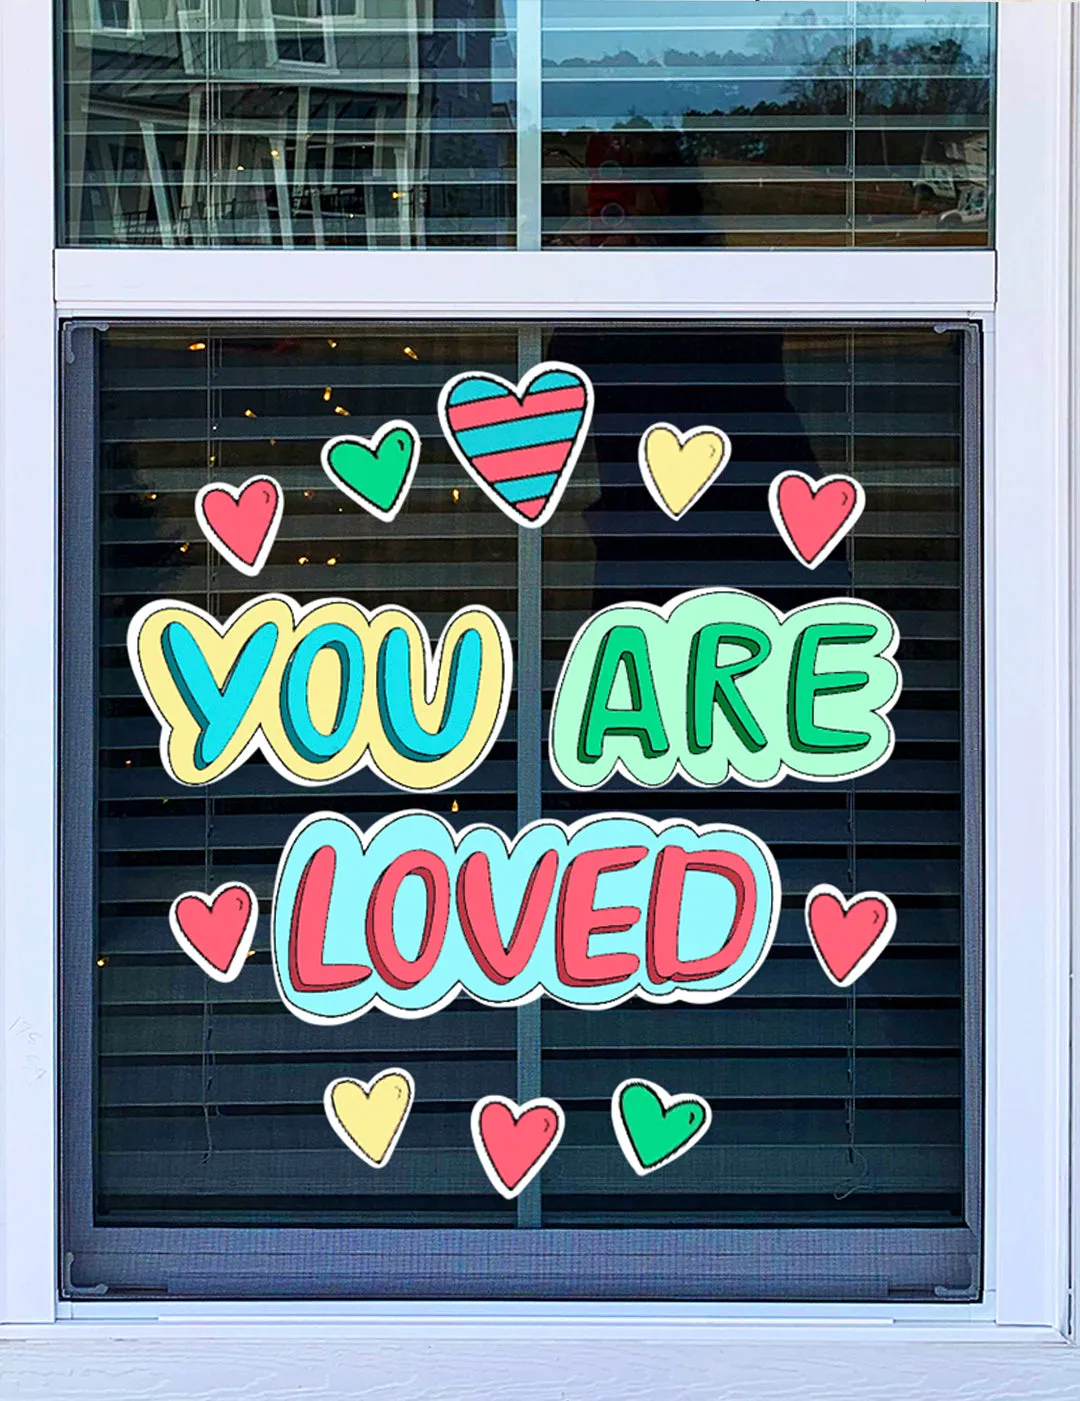 YOU ARE
LOVED